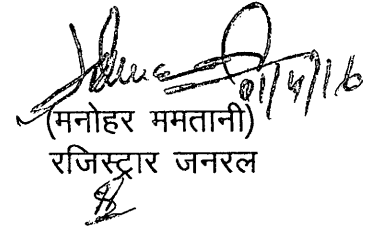 01/4/16
(मनोहर ममतानी)
रजिस्ट्रार जनरल